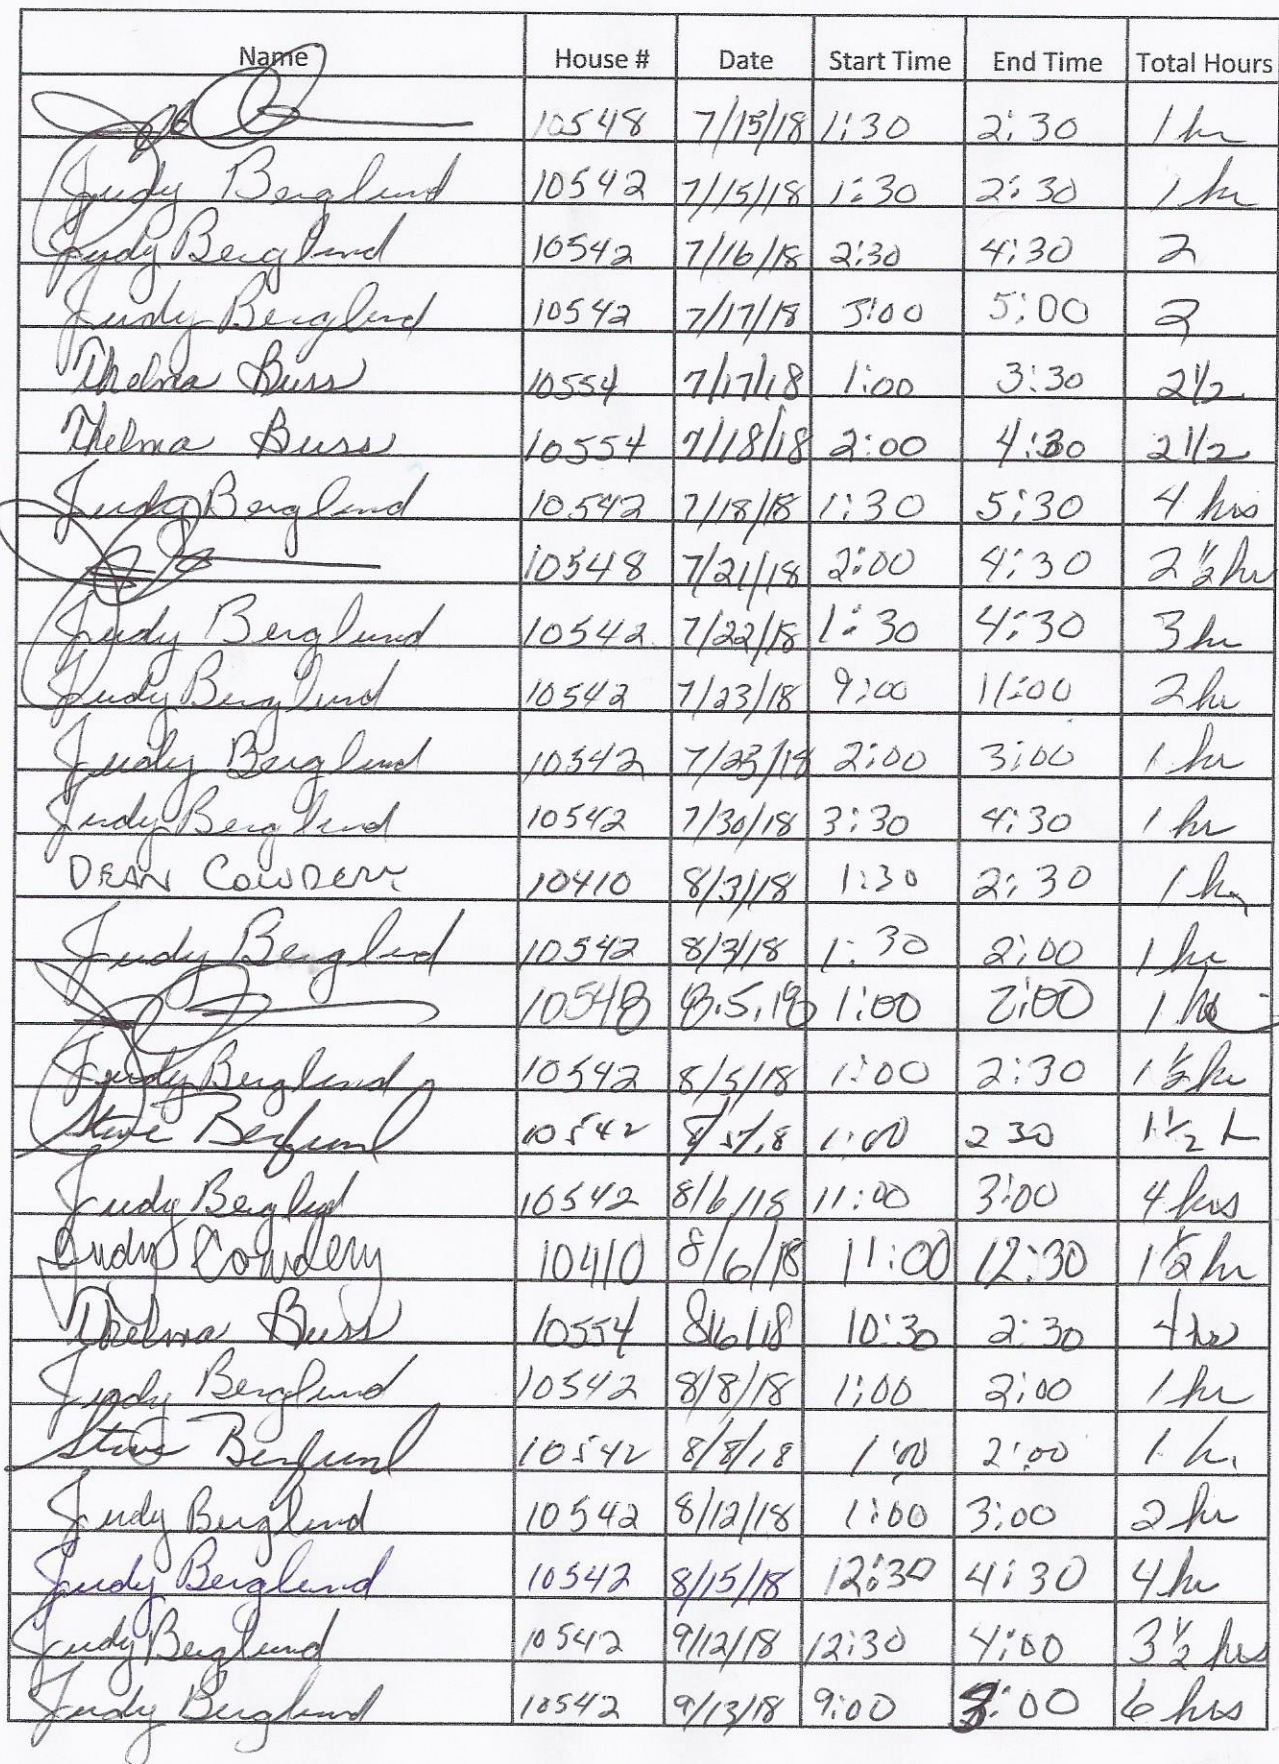 Name House # Date Start Time End Time Total Hours
10548 7/15/18 1:30 2:30 1 hr
Judy Berglund 10542 7/15/18 1:30 2:30 1 hr
Judy Berglund 10542 7/16/18 2:30 4:30 2
Judy Berglund 10542 7/17/18 3:00 5:00 2
Thelma Buss 10554 7/17/18 1:00 3:30 2 1/2
Thelma Buss 10554 7/18/18 2:00 4:30 2 1/2
Judy Berglund 10542 7/18/18 1:30 5:30 4 hrs
10548 7/21/18 2:00 4:30 2 1/2 hr
Judy Berglund 10542 7/22/18 1:30 4:30 3 hr
Judy Berglund 10542 7/23/18 9:00 11:00 2 hr
Judy Berglund 10542 7/23/18 2:00 3:00 1 hr
Judy Berglund 10542 7/30/18 3:30 4:30 1 hr
DEAN COWDERY 10410 8/3/18 1:30 2:30 1 hr
Judy Berglund 10542 8/3/18 1:30 2:00 1 hr
10548 8.5.18 1:00 2:00 1
Judy Berglund 10542 8/5/18 1:00 2:30 1 1/2 hr
Steve Berglund 10542 8/5/18 1:00 2 30 1 1/2 h
Judy Berglund 10542 8/6/18 11:00 3:00 4 hrs
Judy Cowdery 10410 8/6/18 11:00 12:30 1 1/2 hr
Thelma Buss 10554 8/6/18 10:30 2:30 4 hrs
Judy Berglund 10542 8/8/18 1:00 2:00 1 hr
Steve Berglund 10542 8/8/18 1:00 2:00 1 h.
Judy Berglund 10542 8/12/18 1:00 3:00 2 hr
Judy Berglund 10542 8/15/18 12:30 4:30 4 hr
Judy Berglund 10542 9/12/18 12:30 4:00 3 1/2 hrs
Judy Berglund 10542 9/13/18 9:00 3:00 6 hrs